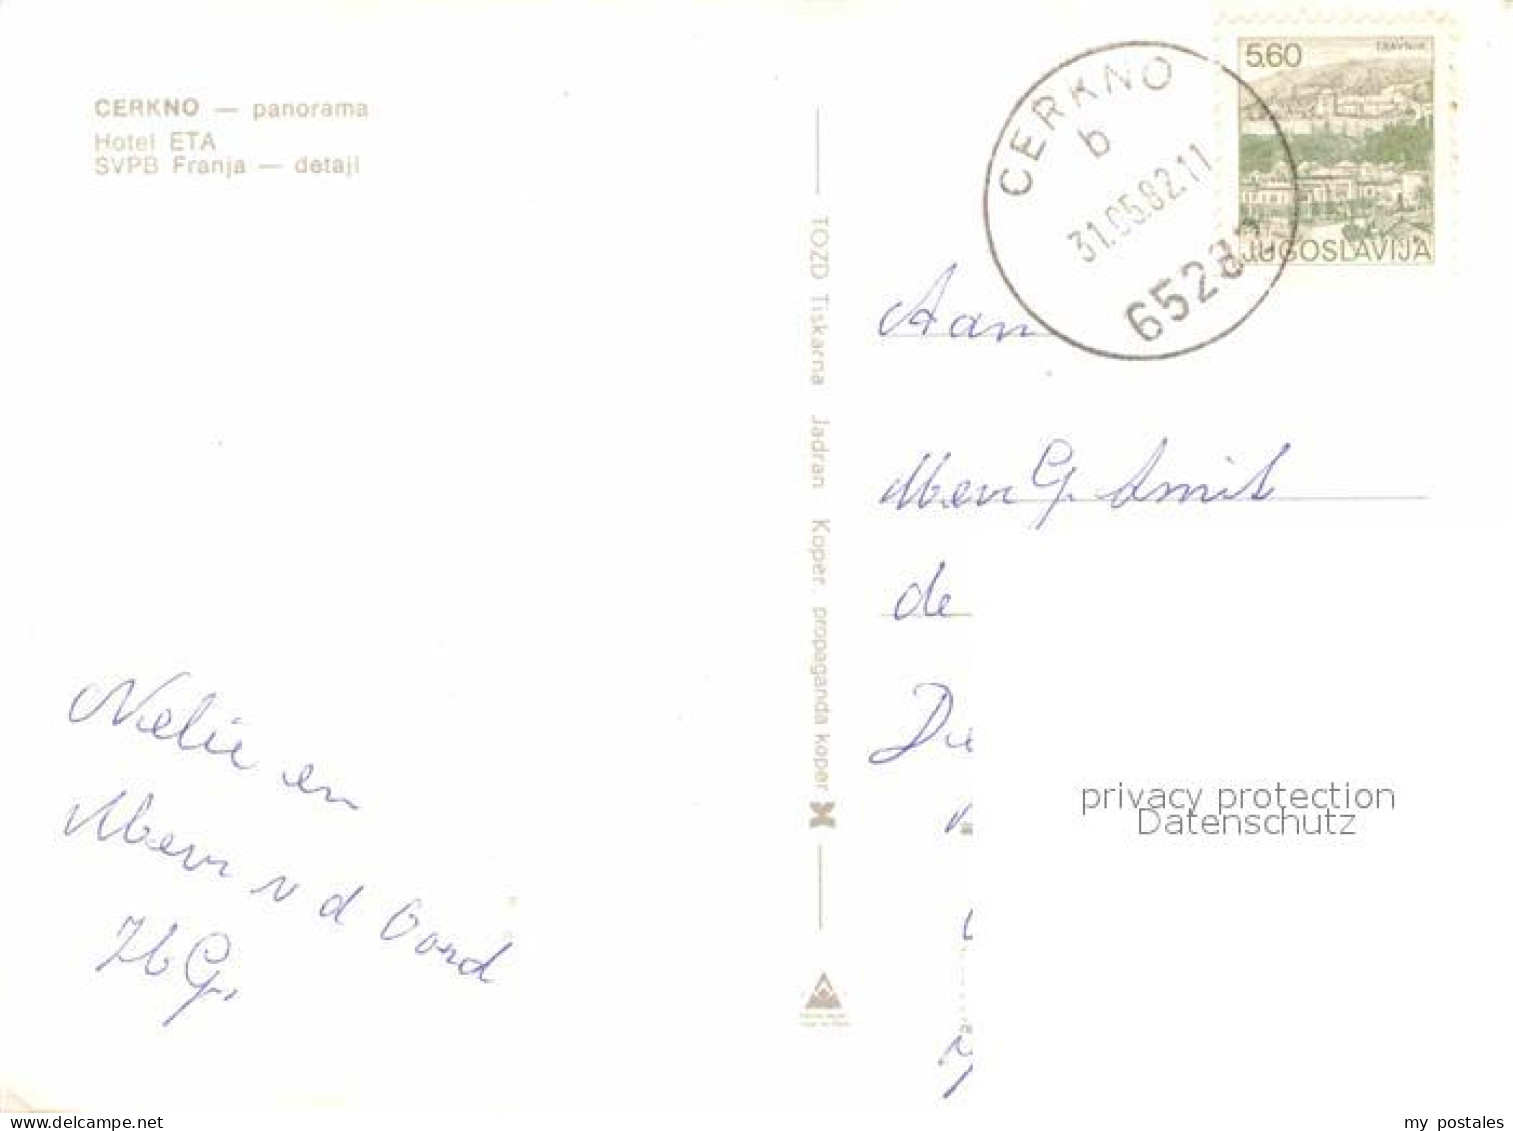 CERKNO — panorama
Hotel ETA
SVPB Franja — detajl
TOZD Tiskarna Jadran Koper. propaganda koper
5,60
TRAVNIK
JUGOSLAVIJA
CERKNO
b
31.05.82.11
65282
Aan
Mevr G. Smit
de
Nelie en
Mevr v d Oord
Zb G.
privacy protection
Datenschutz
www.delcampe.net
my postales